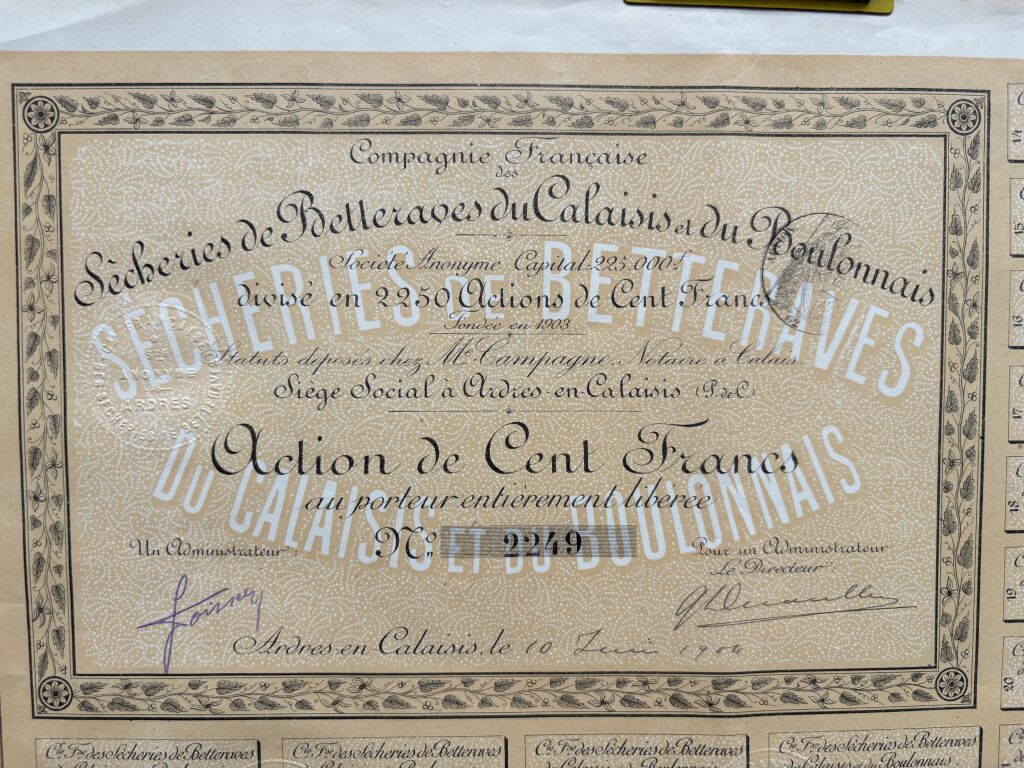 Compagnie Française
des
Sècheries de Betteraves du Calaisis et du Boulonnais
Société Anonyme, Capital: 225.000f
divisé en 2250 Actions de Cent Francs
Fondée en 1903
Statuts déposés chez Me Campagne, Notaire à Calais
Siège Social à Ardres-en-Calaisis (P.-de-C.)
Action de Cent Francs
au porteur entièrement libérée
No. 2249
Un Administrateur:
Pour un Administrateur
Le Directeur:
Ardres-en-Calaisis, le 10 Juin 1904
SÈCHERIES DE BETTERAVES
DU CALAISIS ET DU BOULONNAIS
ARDRES
14
15
16
17
18
19
20
Cie Fse des Sècheries de Betteraves
Cie Fse des Sècheries de Betteraves
Cie Fse des Sècheries de Betteraves
Cie Fse des Sècheries de Betteraves
du Calaisis et du Boulonnais.